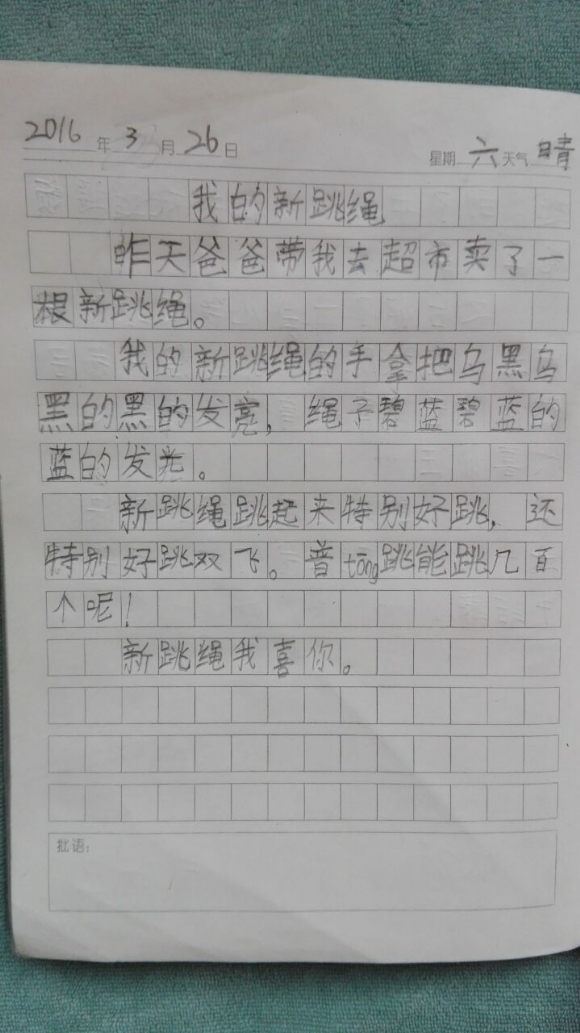 2016年3月26日 星期六 天气晴
我的新跳绳
昨天爸爸带我去超市卖了一
根新跳绳。
我的新跳绳的手拿把乌黑乌
黑的黑的发亮,绳子碧蓝碧蓝的
蓝的发光。
新跳绳跳起来特别好跳,还
特别好跳双飞。普tōng跳能跳几百
个呢!
新跳绳我喜你。
批语: